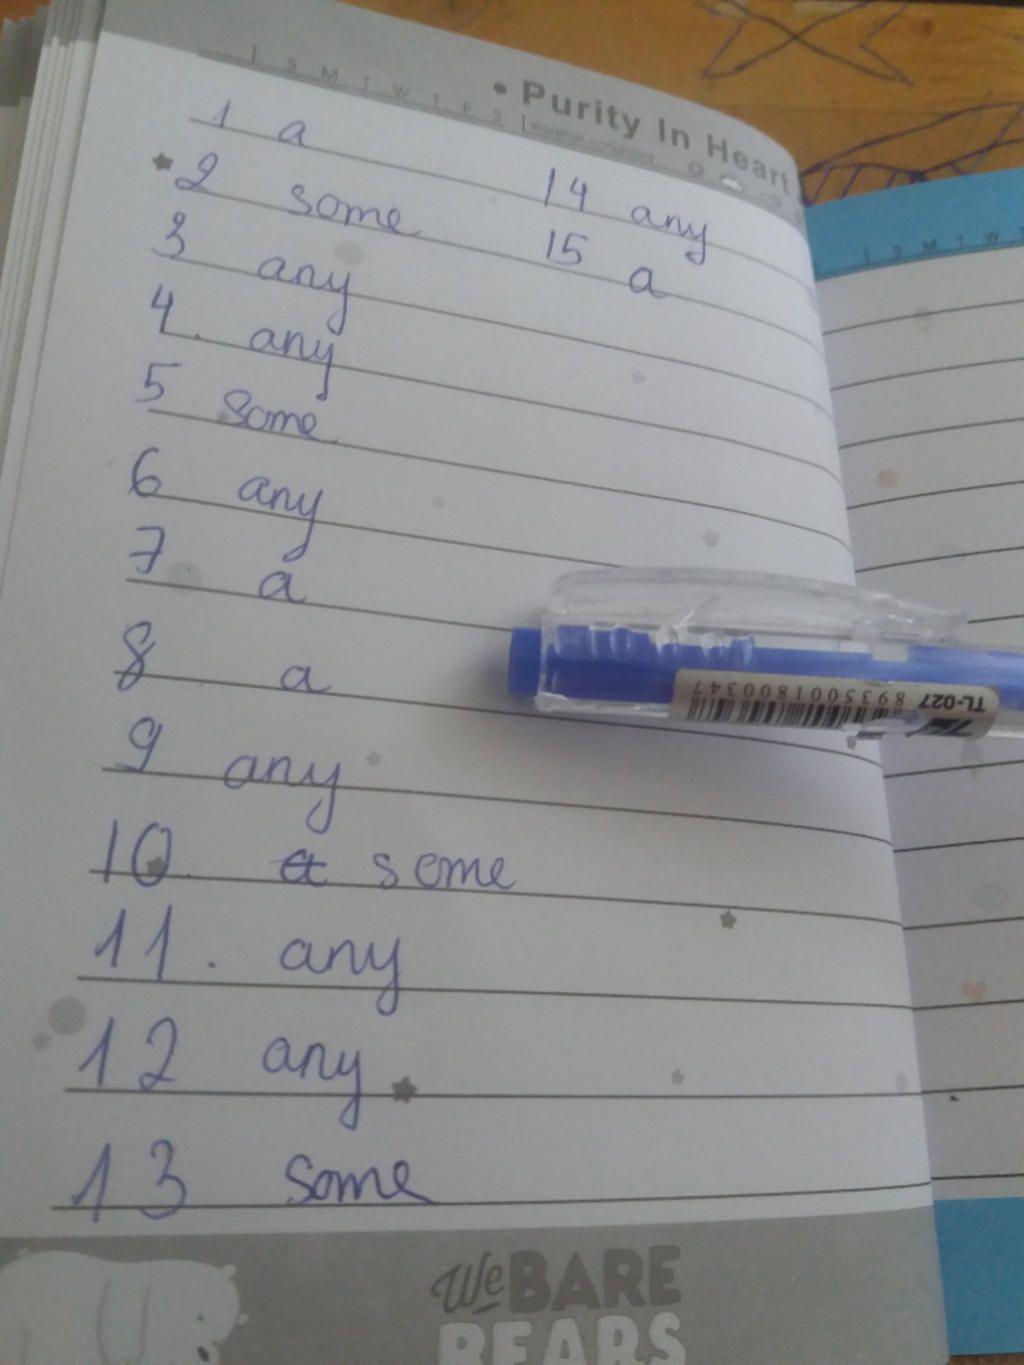 • Purity In Heart
S M T W T F S
1 a
2 some
3 any
4. any
5 some
6 any
7 a
8 a
9 any
10. a some
11. any
12 any
13 some
14 any
15 a
TL-027
8935001800347
We BARE
BEARS
S M T W T